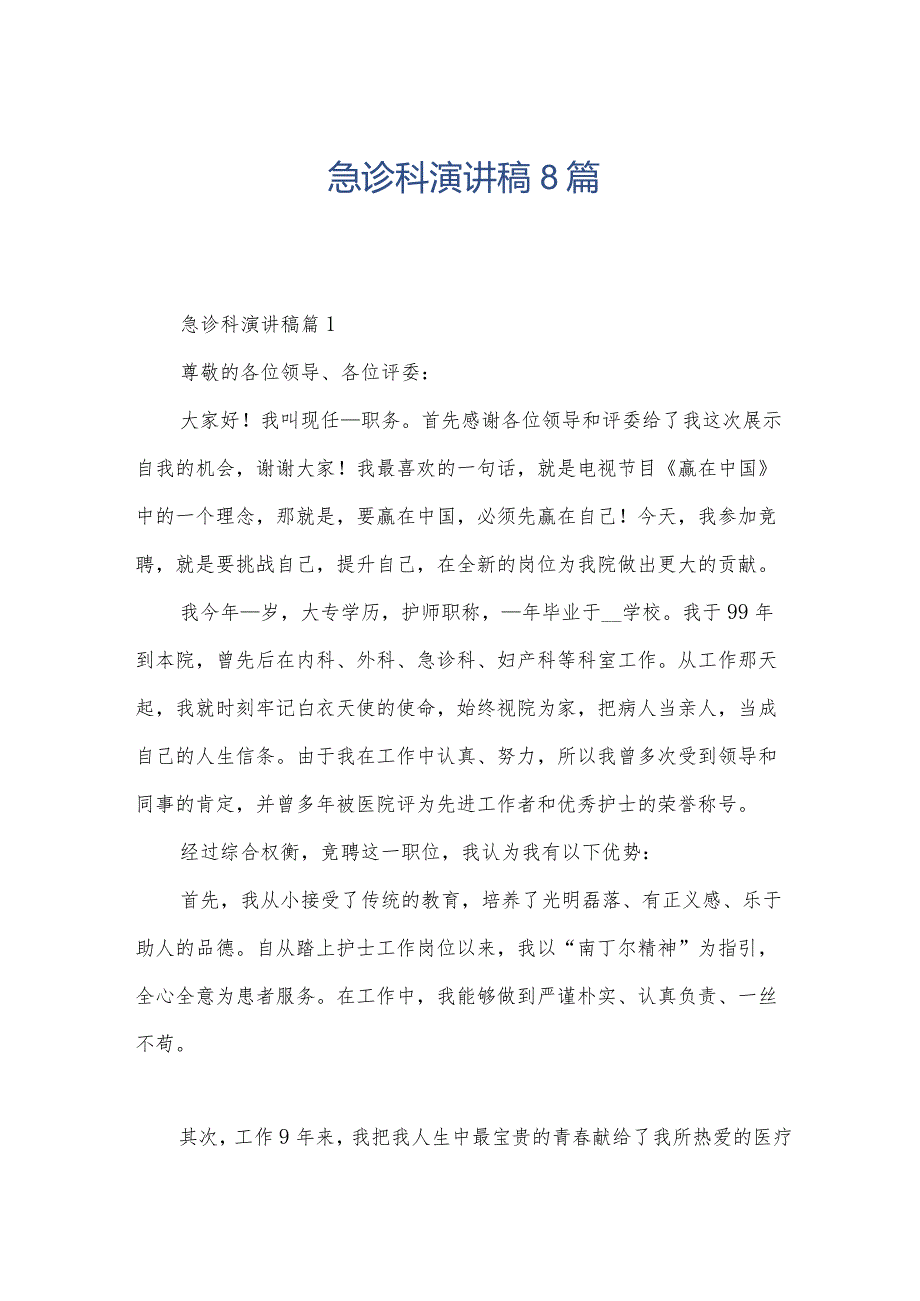 急诊科演讲稿 8 篇
急诊科演讲稿篇 1
尊敬的各位领导、各位评委：
大家好！我叫现任—职务。首先感谢各位领导和评委给了我这次展示
自我的机会，谢谢大家！我最喜欢的一句话，就是电视节目《赢在中国》
中的一个理念，那就是，要赢在中国，必须先赢在自己！今天，我参加竞
聘，就是要挑战自己，提升自己，在全新的岗位为我院做出更大的贡献。
我今年—岁，大专学历，护师职称，—年毕业于__学校。我于 99 年
到本院，曾先后在内科、外科、急诊科、妇产科等科室工作。从工作那天
起，我就时刻牢记白衣天使的使命，始终视院为家，把病人当亲人，当成
自己的人生信条。由于我在工作中认真、努力，所以我曾多次受到领导和
同事的肯定，并曾多年被医院评为先进工作者和优秀护士的荣誉称号。
经过综合权衡，竞聘这一职位，我认为我有以下优势：
首先，我从小接受了传统的教育，培养了光明磊落、有正义感、乐于
助人的品德。自从踏上护士工作岗位以来，我以“南丁尔精神”为指引，
全心全意为患者服务。在工作中，我能够做到严谨朴实、认真负责、一丝
不苟。
其次，工作 9 年来，我把我人生中最宝贵的青春献给了我所热爱的医疗